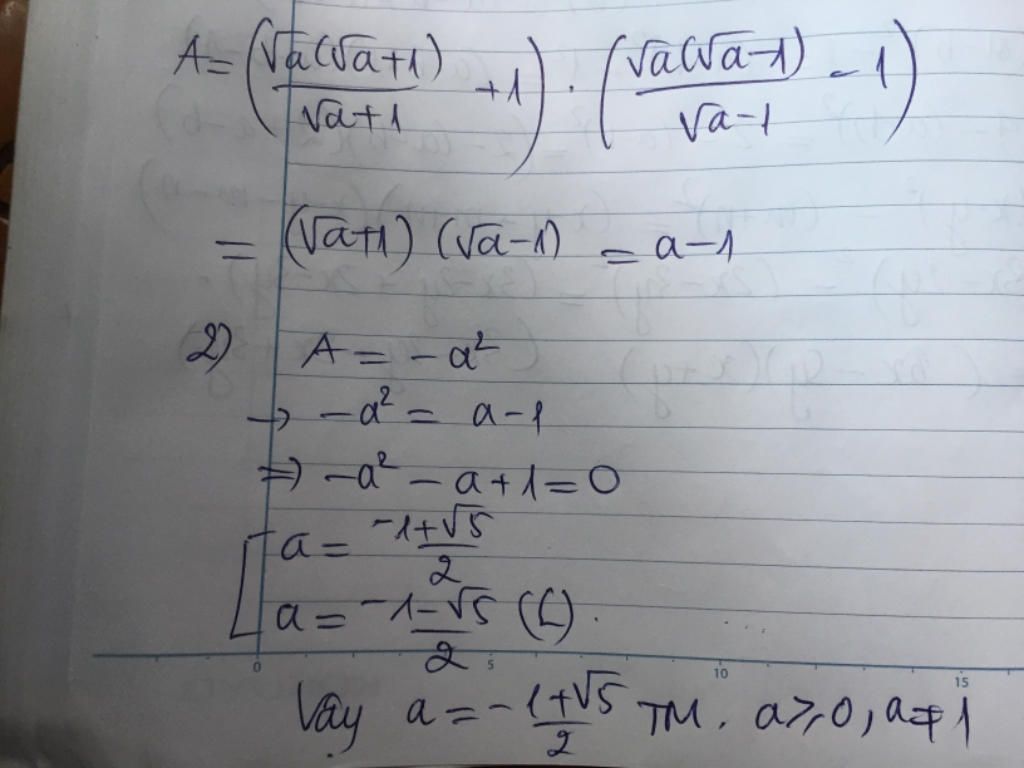 A = (√a(√a+1)/√a+1 + 1) . (√a(√a-1)/√a-1 - 1)
= (√a+1) (√a-1) = a-1
2) A = -a²
→ -a² = a-1
⇒ -a² - a+1=0
[ a = -1+√5/2
a = -1-√5/2 (L).
0 5 10 15
Vậy a = -1+√5/2 TM. a≥0, a≠1